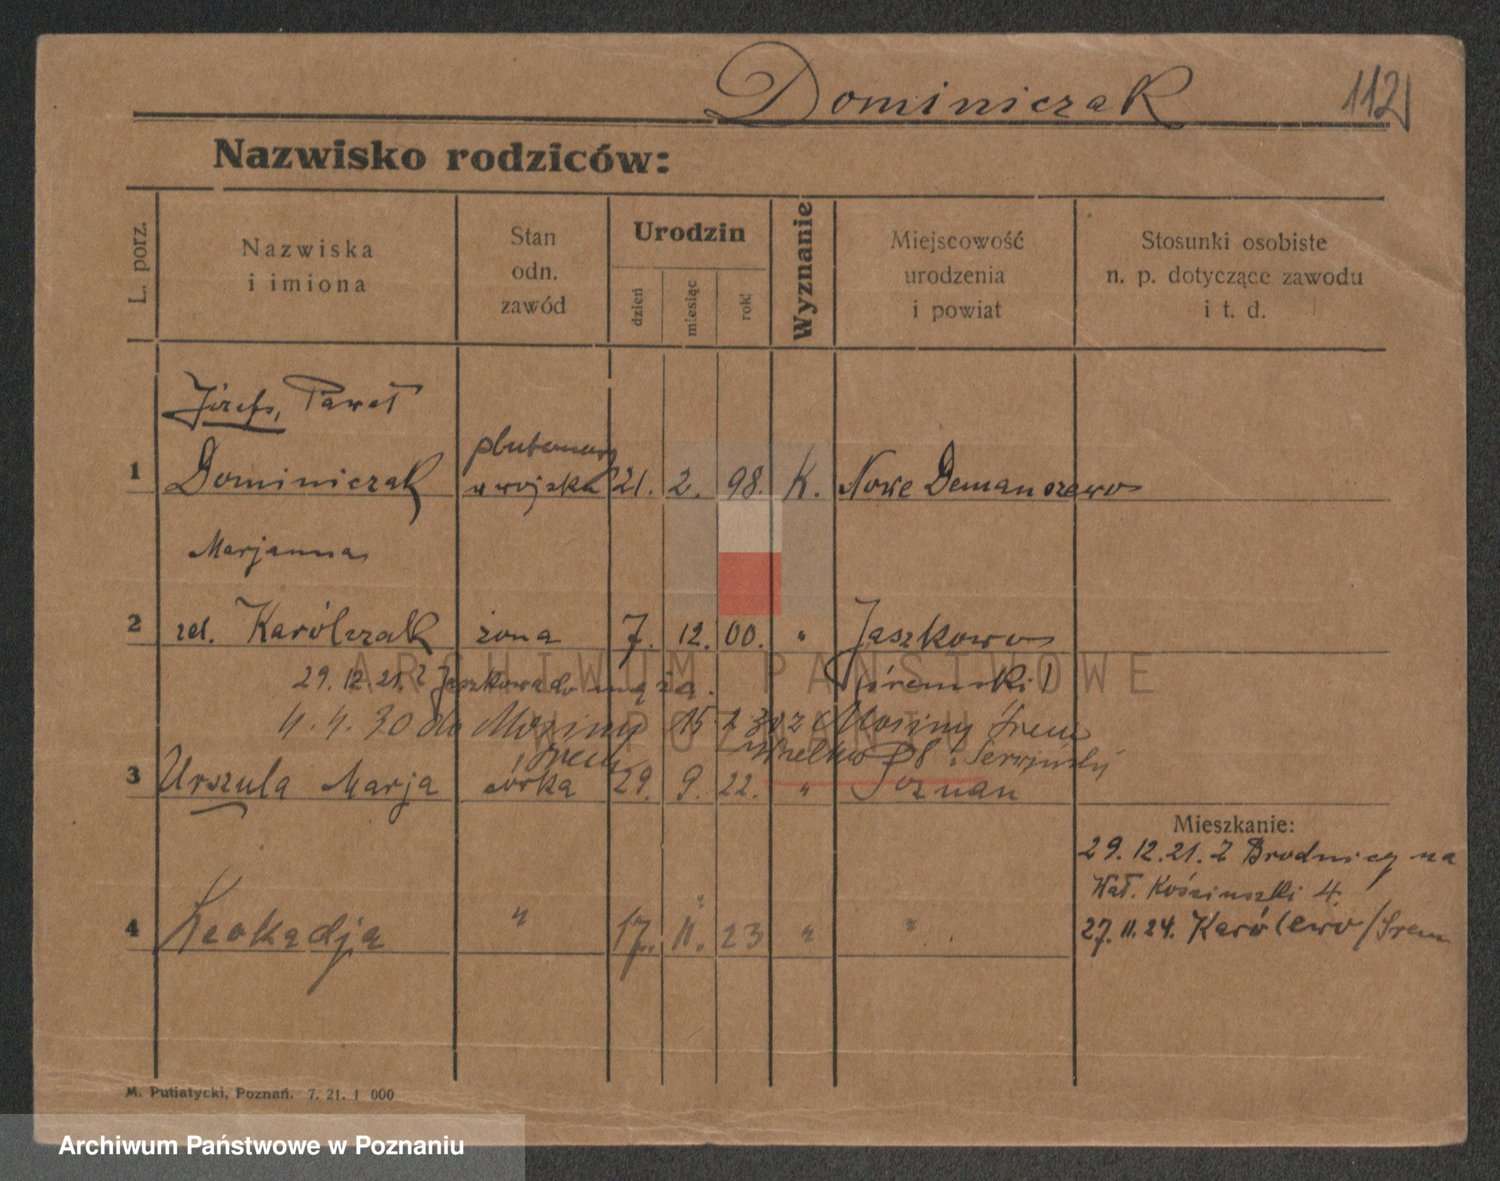 Dominiczak 112
Nazwisko rodziców:
L. porz.
Nazwiska
i imiona
Stan
odn.
zawód
Urodzin
dzień
miesiąc
rok
Wyznanie
Miejscowość
urodzenia
i powiat
Stosunki osobiste
n. p. dotyczące zawodu
i t. d.
Józef, Paweł
plutonowy
1 Dominiczak w wojsku 21. 2. 98. K. Nowe
Marjanna
2 Karólczak żona 7. 12. 00. " Jaszkowo
29.12.21. z Jaszkowa do męża. śremski
4.4.30 do Mosiny 15 z Mosiny Śrem
Śrem
3 Urszula Marja córka 29. 9. 22. " Poznań
Mieszkanie:
29.12.21. z Brodnicy na
Wał. Kościuszki 4.
4 Leokadja " 17. 11. 23 " "
27.11.24. Karólewo/Śrem
M. Putiatycki, Poznań. 7. 21. 1 000
ARCHIWUM PAŃSTWOWE
W POZNANIU
Archiwum Państwowe w Poznaniu